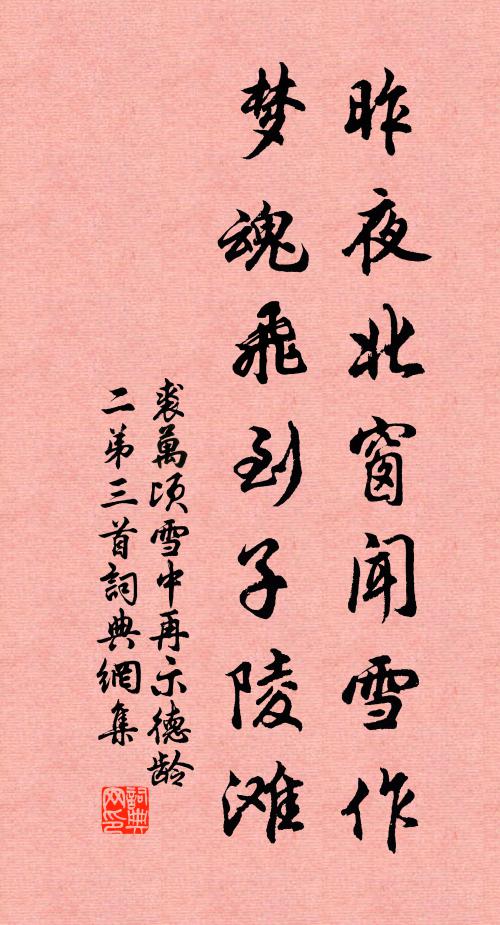 昨夜北窗闻雪作
梦魂飞到子陵滩
裘萬顷雪中再示德龄
二第三首詞典網集
詞典网印